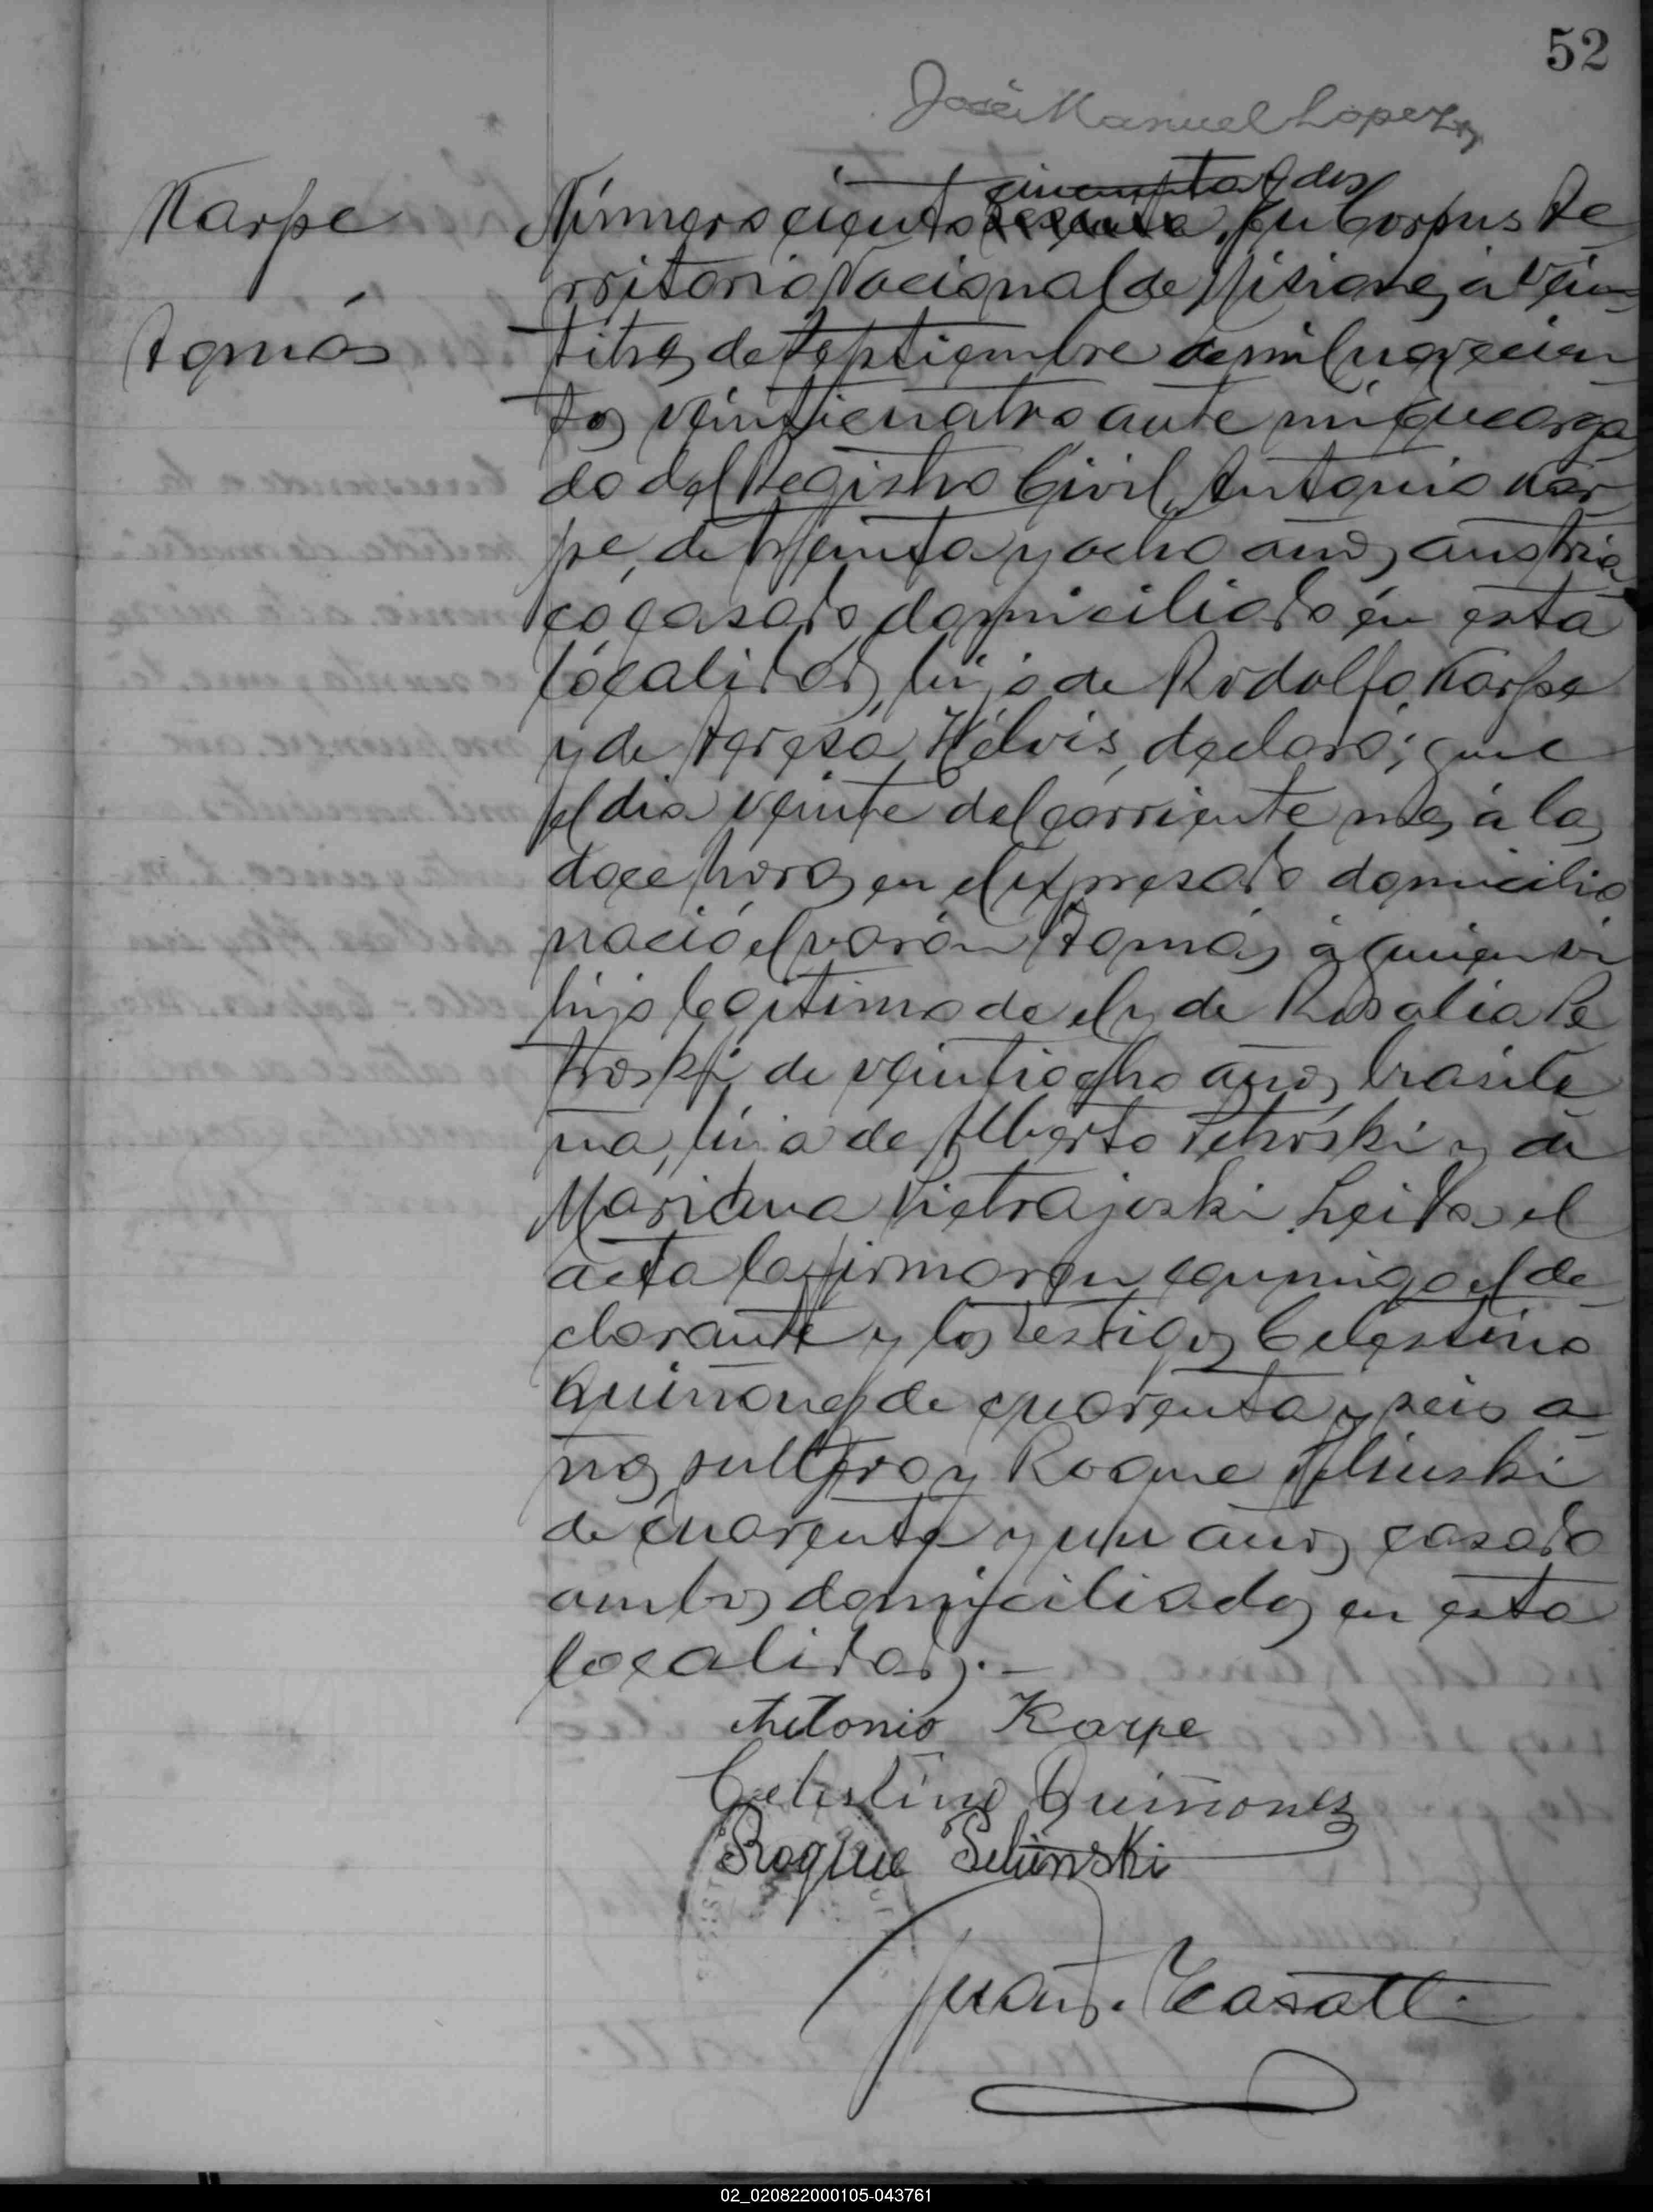 52
José Manuel Lopez
cincuenta y dos
Karpe
Número ciento sesenta, En Corpus Te
rritorio Nacional de Misiones, a vein
Tomás
titres de Septiembre de mil novecien
tos veinticuatro ante mi encarga
do del Registro Civil, Antonio Kar
pe, de treinta y ocho años, austria
co casado domiciliado en esta
localidad, hijo de Rodolfo Karpe
y de Teresa Hélvis, declaró; que
el dia veinte del corriente mes a las
doce horas en el expresado domicilio
nació el varón Tomás, a quien vi
hijo legitimo de el y de Rosalia Pe
troski, de veintiocho años, brasile
ña, hija de Alberto Petroski y de
Mariana Pietrajeski. Leida el
acta la firmaron conmigo el de
clarante y los testigos Celestino
Quiñones de cuarenta y seis a
ños, soltero y Roque Selinski
de cuarenta y un años, casado
ambos domiciliados en esta
localidad.-
Antonio Karpe
Celestino Quiñonez
Roque Selinski
Juan
02_020822000105-043761